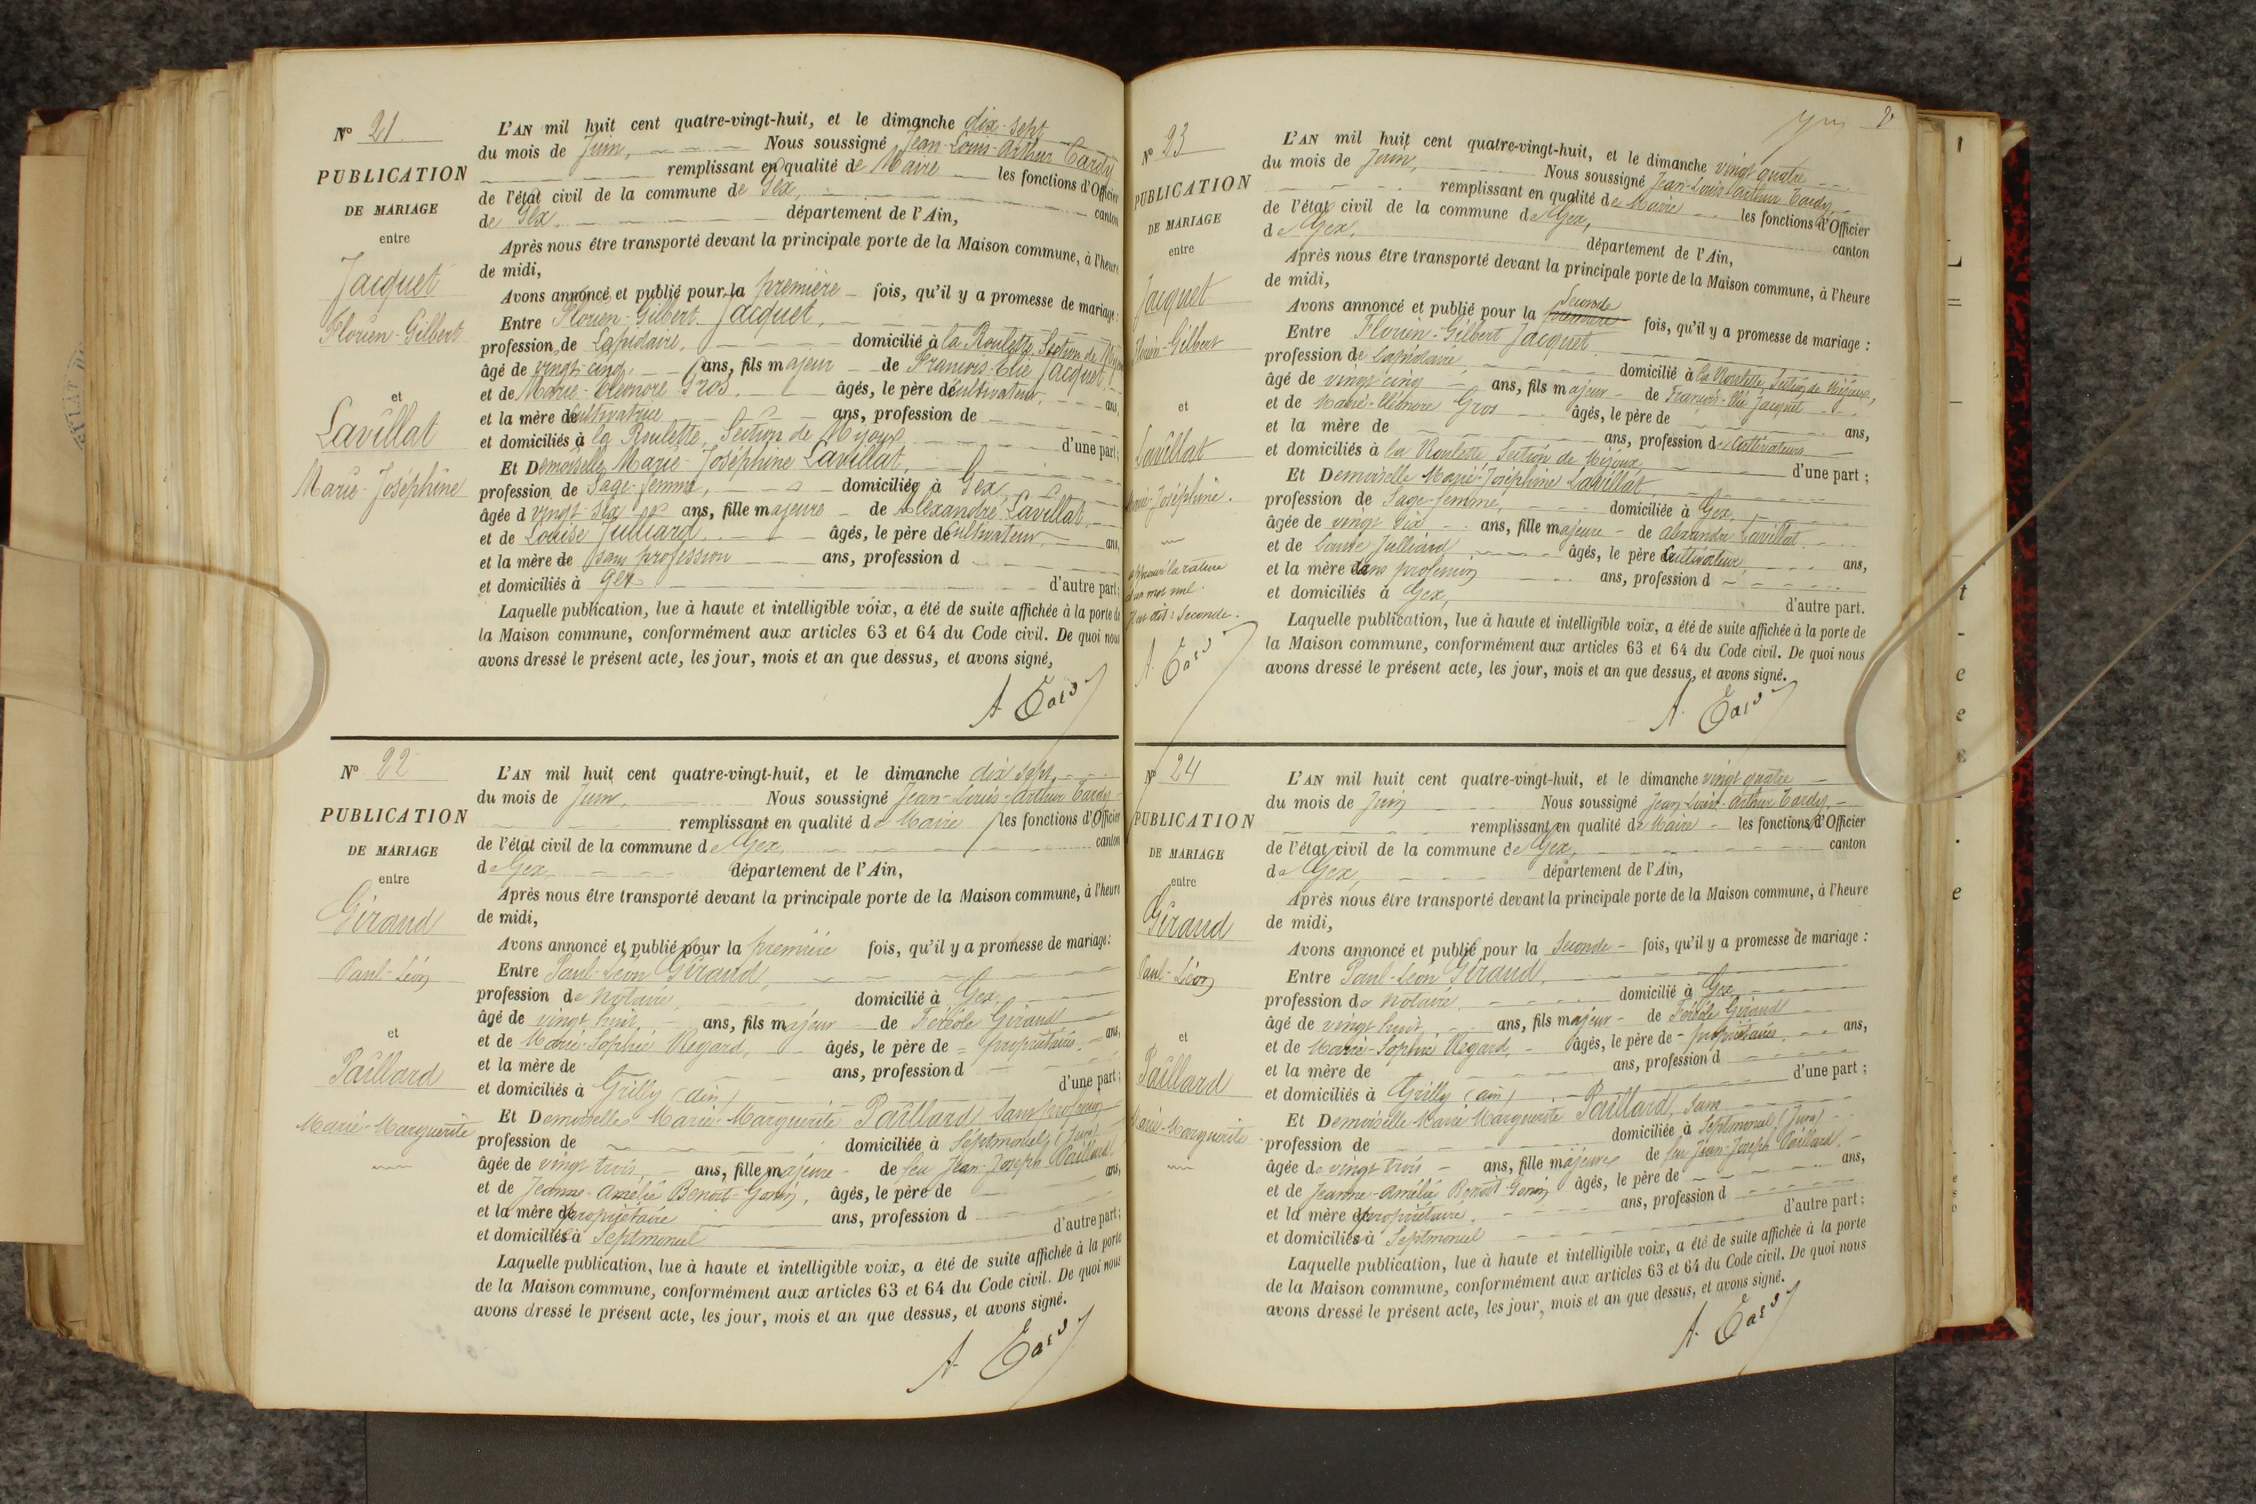 N° 21
PUBLICATION
DE MARIAGE
entre
Jacquet
Florien-Gilbert
et
Lavillat
Marie-Joséphine
L'AN mil huit cent quatre-vingt-huit, et le dimanche dix-sept
du mois de Juin, Nous soussigné Jean-Louis-Arthur Tardy
remplissant en qualité de Maire les fonctions d'Officier
de l'état civil de la commune de Gex, canton
de Gex département de l'Ain,
Après nous être transporté devant la principale porte de la Maison commune, à l'heure
de midi,
Avons annoncé et publié pour la première fois, qu'il y a promesse de mariage:
Entre Florien-Gilbert Jacquet,
profession de Lapidaire, domicilié à la Roulette, Section de Mijoux
âgé de vingt-cinq ans, fils majeur de François-Elie Jacquet,
et de Marie-Eléonore Gros âgés, le père de cultivateur ans,
et la mère de cultivatrice ans, profession de
et domiciliés à la Roulette, Section de Mijoux d'une part;
Et Demoiselle Marie-Joséphine Lavillat,
profession de Sage-femme, domiciliée à Gex,
âgée d vingt-six ans, fille majeure de Alexandre Lavillat,
et de Louise Julliard âgés, le père de cultivateur ans,
et la mère de sans profession ans, profession d
et domiciliés à Gex d'autre part;
Laquelle publication, lue à haute et intelligible voix, a été de suite affichée à la porte de
la Maison commune, conformément aux articles 63 et 64 du Code civil. De quoi nous
avons dressé le présent acte, les jour, mois et an que dessus, et avons signé,
A. Tardy
N° 22
PUBLICATION
DE MARIAGE
entre
Giraud
Paul-Léon
et
Paillard
Marie-Marguerite
L'AN mil huit cent quatre-vingt-huit, et le dimanche dix sept,
du mois de Juin, Nous soussigné Jean-Louis-Arthur Tardy
remplissant en qualité de Maire les fonctions d'Officier
de l'état civil de la commune de Gex, canton
de Gex département de l'Ain,
Après nous être transporté devant la principale porte de la Maison commune, à l'heure
de midi,
Avons annoncé et publié pour la première fois, qu'il y a promesse de mariage:
Entre Paul-Léon Giraud,
profession de Notaire domicilié à Gex
âgé de vingt huit ans, fils majeur de Féréole Giraud
et de Marie-Sophie Regard, âgés, le père de propriétaires ans,
et la mère de ans, profession d
et domiciliés à Grilly (ain) d'une part;
Et Demoiselle Marie-Marguerite Paillard, sans profession
profession de domiciliée à Septmoncel (Jura)
âgée de vingt trois ans, fille majeure de feu Jean-Joseph Paillard
et de Jeanne-Amélie Benoit-Gonin, âgés, le père de ans,
et la mère de propriétaire ans, profession d
et domiciliés à Septmoncel d'autre part;
Laquelle publication, lue à haute et intelligible voix, a été de suite affichée à la porte
de la Maison commune, conformément aux articles 63 et 64 du Code civil. De quoi nous
avons dressé le présent acte, les jour, mois et an que dessus, et avons signé.
A. Tardy
N° 23
PUBLICATION
DE MARIAGE
entre
Jacquet
Florien-Gilbert
et
Lavillat
Marie-Joséphine.
approuvé la rature
d'un mot nul.
A. Tardy
L'AN mil huit cent quatre-vingt-huit, et le dimanche vingt quatre
du mois de Juin, Nous soussigné Jean-Louis-Arthur Tardy,
remplissant en qualité de Maire les fonctions d'Officier
de l'état civil de la commune de Gex, canton
de Gex, département de l'Ain,
Après nous être transporté devant la principale porte de la Maison commune, à l'heure
de midi,
Avons annoncé et publié pour la première Seconde fois, qu'il y a promesse de mariage :
Entre Florien-Gilbert Jacquet
profession de Lapidaire, domicilié à la Roulette, Section de Mijoux,
âgé de vingt cinq ans, fils majeur de François-Elie Jacquet
et de Marie-Eléonore Gros âgés, le père de ans,
et la mère de ans, profession de cultivateurs
et domiciliés à la Roulette Section de Mijoux d'une part ;
Et Demoiselle Marie-Joséphine Lavillat,
profession de Sage-femme, domiciliée à Gex,
âgée de vingt six ans, fille majeure de Alexandre Lavillat
et de Louise Julliard âgés, le père de cultivateur, ans,
et la mère de sans profession ans, profession d
et domiciliés à Gex, d'autre part.
Laquelle publication, lue à haute et intelligible voix, a été de suite affichée à la porte de
la Maison commune, conformément aux articles 63 et 64 du Code civil. De quoi nous
avons dressé le présent acte, les jour, mois et an que dessus, et avons signé.
A. Tardy
N° 24
PUBLICATION
DE MARIAGE
entre
Giraud
Paul-Léon
et
Paillard
Marie-Marguerite
L'AN mil huit cent quatre-vingt-huit, et le dimanche vingt quatre
du mois de Juin Nous soussigné Jean Louis-Arthur Tardy,
remplissant en qualité de Maire les fonctions d'Officier
de l'état civil de la commune de Gex, canton
de Gex, département de l'Ain,
Après nous être transporté devant la principale porte de la Maison commune, à l'heure
de midi,
Avons annoncé et publié pour la Seconde fois, qu'il y a promesse de mariage :
Entre Paul-Léon Giraud,
profession de Notaire domicilié à Gex
âgé de vingt huit ans, fils majeur de Féréole Giraud
et de Marie-Sophie Regard, âgés, le père de propriétaires, ans,
et la mère de ans, profession d
et domiciliés à Grilly (ain) d'une part ;
Et Demoiselle Marie Marguerite Paillard, sans
profession de domiciliée à Septmoncel (Jura)
âgée de vingt trois ans, fille majeure de feu Jean-Joseph Paillard
et de Jeanne-Amélie Benoit-Gonin âgés, le père de ans,
et la mère de propriétaire. ans, profession d
et domiciliés à Septmoncel d'autre part ;
Laquelle publication, lue à haute et intelligible voix, a été de suite affichée à la porte
de la Maison commune, conformément aux articles 63 et 64 du Code civil. De quoi nous
avons dressé le présent acte, les jour, mois et an que dessus, et avons signé.
A. Tardy